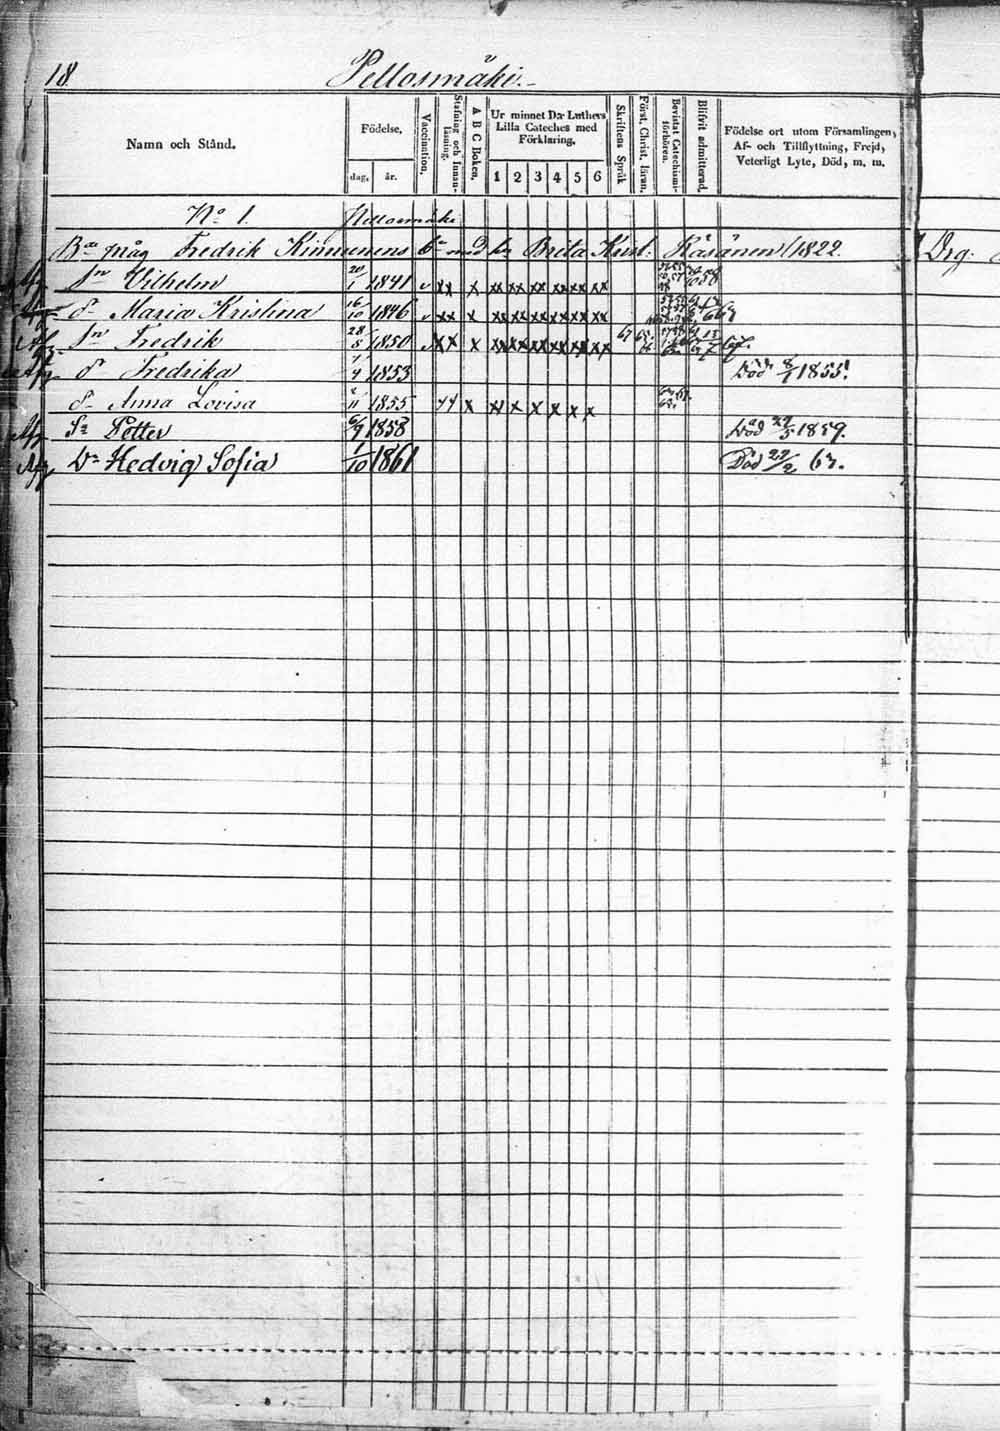 18. Pellosmäki.
Namn och Stånd.
Födelse,
dag, år.
Vaccination.
Stafning och Innanläsning.
A B C Boken.
Ur minnet D:r Luthers Lilla Cateches med Förklaring.
1 2 3 4 5 6
Skriftens Språk
Först. Christ. läran.
Bevistat Catechismiförhören.
Blifvit admitterad.
Födelse ort utom Församlingen, Af- och Tillflyttning, Frejd, Veterligt Lyte, Död, m. m.
No 1. Pellosmäki
Fredrik Kinnunens med Brita Krist: Räsänen 1822. Drg:
Sn Vilhelm 20/1 1841 v xx x xx xx xx xx xx xx 58
dr Maria Kristina 16/10 1846 v xx x xx xx xx xx xx xx
Sn Fredrik 28/8 1850 xx x xx xx xx xx xx xx 67
dr Fredrika 1/4 1853 Död 8/1 1855.
dr Anna Lovisa 2/11 1855 x x x x x x x
Sn Petter 6/9 1858 Död 22/5 1859.
Dr Hedvig Sofia 1/10 1861 Död 22/2 63.